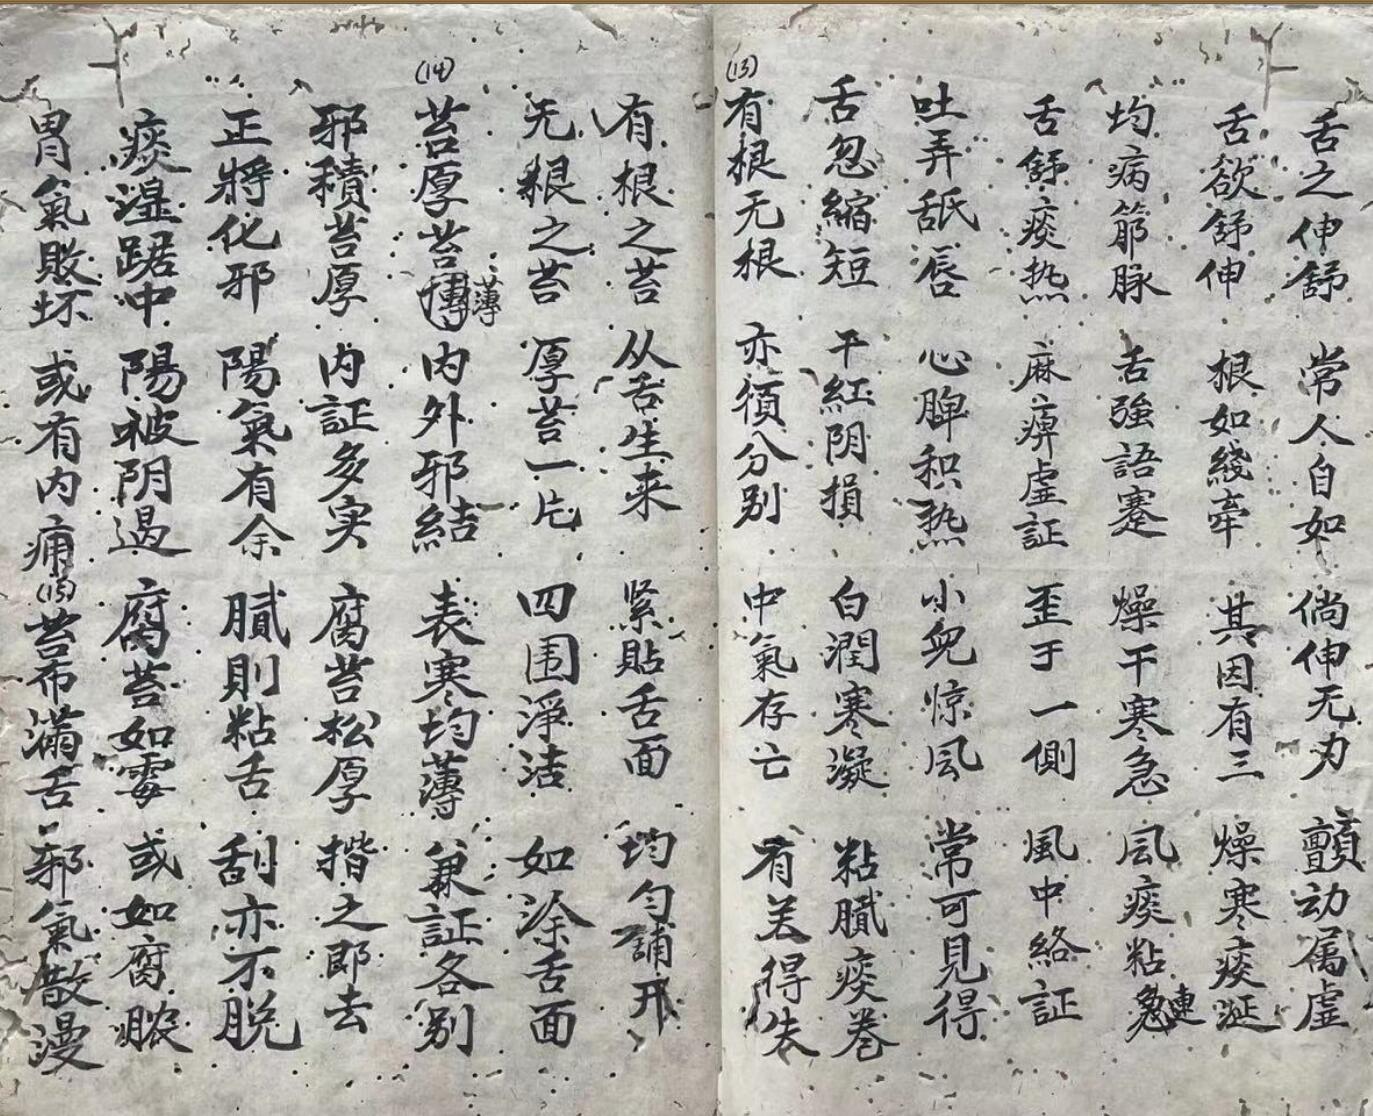 舌之伸舒 常人自如 倘伸无力 颤动属虚
舌欲舒伸 根如綫牽 其因有三 燥寒痰涎
均病筋脉 舌強語蹇 燥干寒急 风痰粘連
舌舒痰热 麻痹虚証 歪于一側 風中絡証
吐弄舐唇 心脾积热 小兒惊风 常可見得
舌忽縮短 干紅阴損 白潤寒凝 粘膩痰卷
(13)
有根无根 亦須分别 中氣存亡 有关得失
有根之苔 从舌生来 紧貼舌面 均匀誧开
无根之苔 厚苔一片 四围淨洁 如涂舌面
(14)
苔厚苔薄 内外邪結 表寒均薄 兼証各别
邪積苔厚 内証多实 腐苔松厚 揩之即去
正將化邪 陽氣有余 膩則粘舌 刮亦不脱
痰濕踞中 陽被阴遏 腐苔如霉 或如腐脓
胃氣敗坏 或有内痈
(15)
苔布滿舌 邪氣散漫